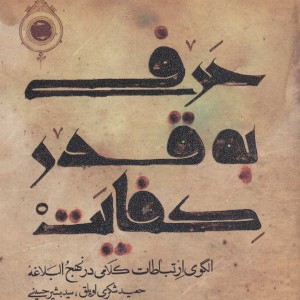 حرفی
به قدر
کفایت
الگوی ارتباطات کلامی در نهج البلاغه
حمید شکری اوبلاق ، سید بشیر حسینی